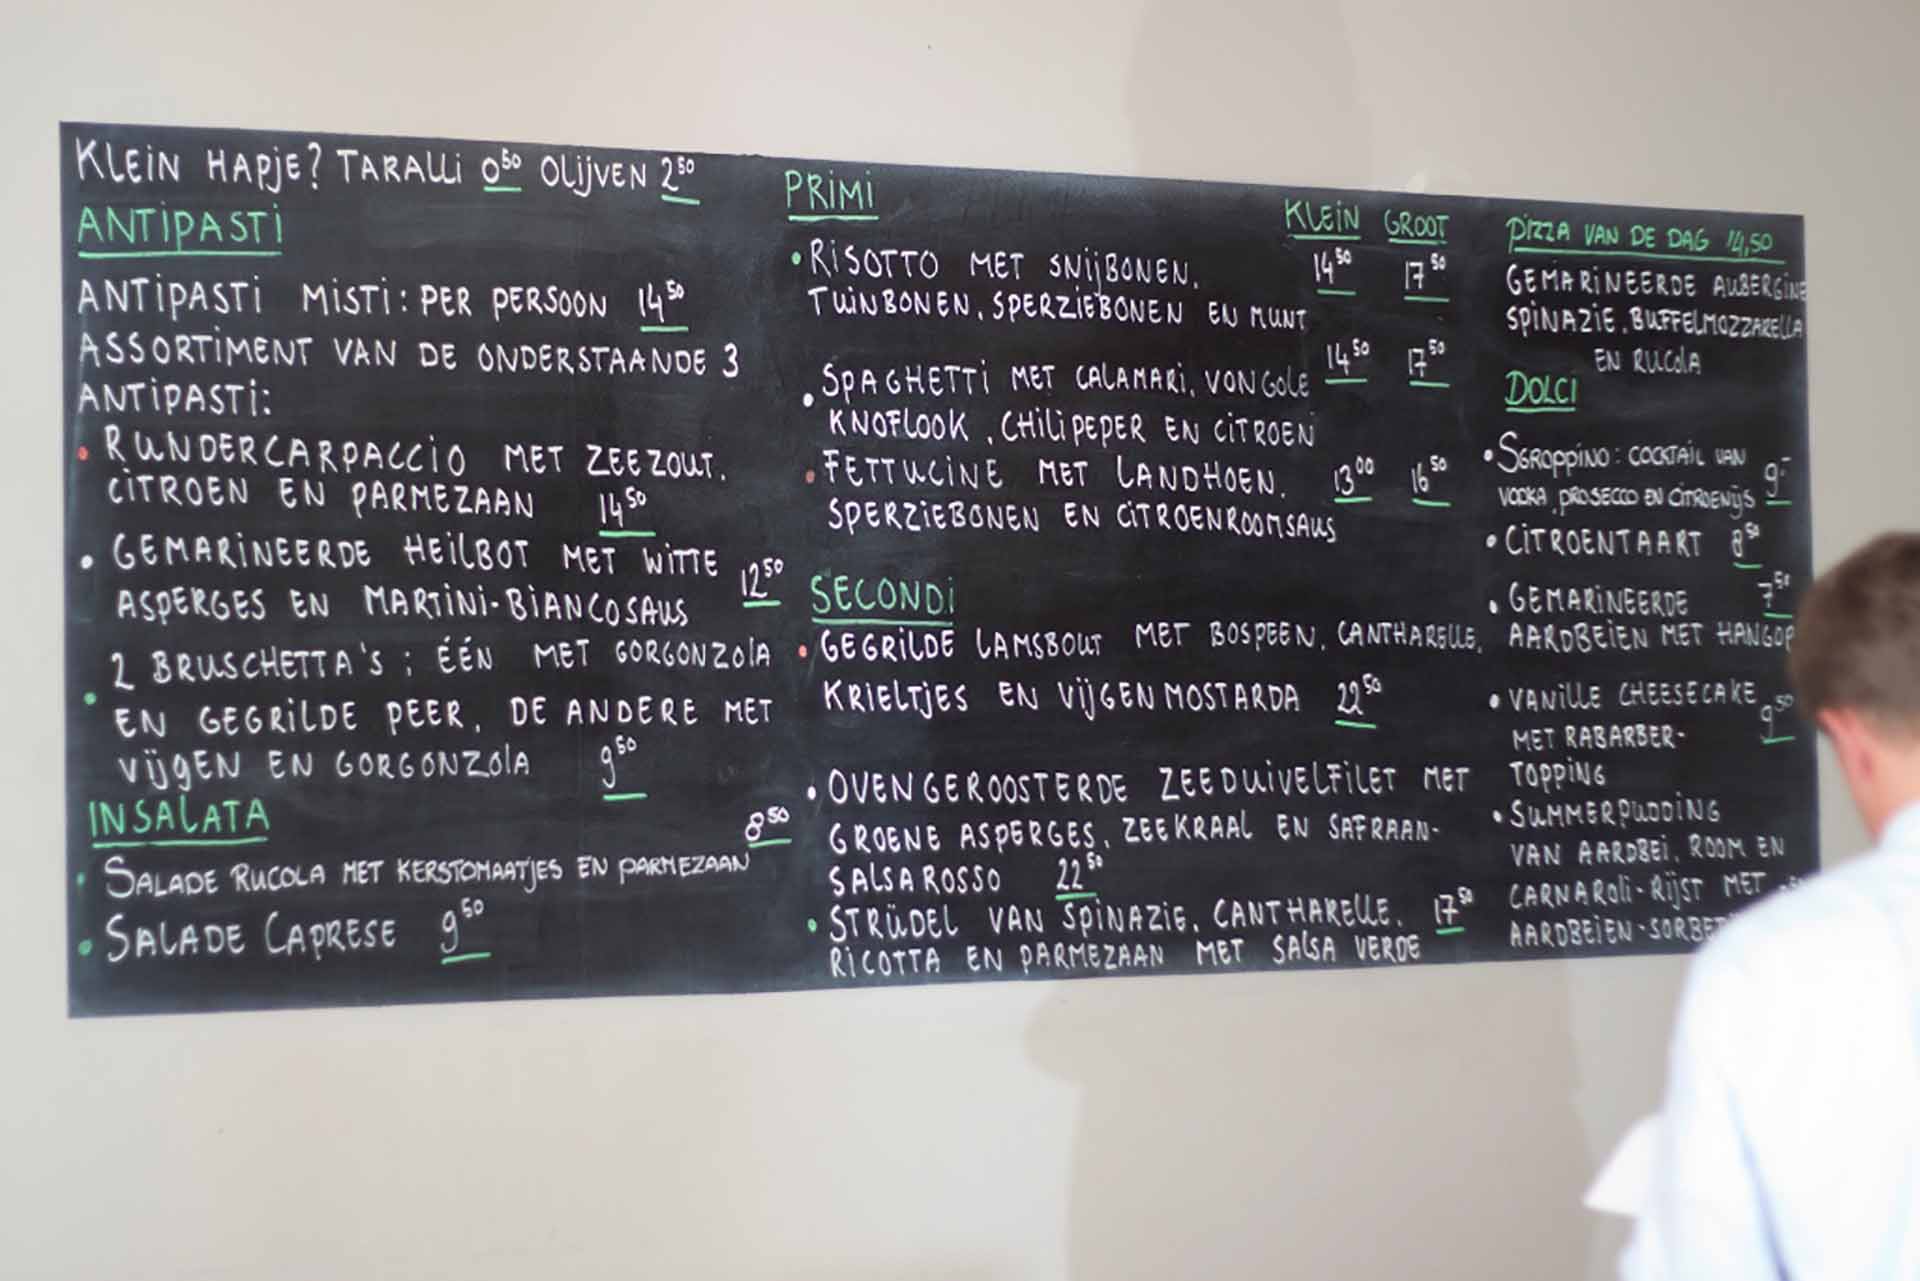 KLEIN HAPJE? TARALLI 0⁵⁰ OLIJVEN 2⁵⁰
ANTIPASTI
ANTIPASTI MISTI: PER PERSOON 14⁵⁰
ASSORTIMENT VAN DE ONDERSTAANDE 3
ANTIPASTI:
• RUNDERCARPACCIO MET ZEEZOUT,
CITROEN EN PARMEZAAN 14⁵⁰
• GEMARINEERDE HEILBOT MET WITTE
ASPERGES EN MARTINI-BIANCOSAUS 12⁵⁰
• 2 BRUSCHETTA'S; ÉÉN MET GORGONZOLA
EN GEGRILDE PEER, DE ANDERE MET
VIJGEN EN GORGONZOLA 9⁵⁰
INSALATA
• SALADE RUCOLA MET KERSTOMAATJES EN PARMEZAAN 8⁵⁰
• SALADE CAPRESE 9⁵⁰
PRIMI
KLEIN GROOT
• RISOTTO MET SNIJBONEN, 14⁵⁰ 17⁵⁰
TUINBONEN, SPERZIEBONEN EN MUNT
• SPAGHETTI MET CALAMARI, VONGOLE 14⁵⁰ 17⁵⁰
KNOFLOOK, CHILIPEPER EN CITROEN
• FETTUCINE MET LANDHOEN, 13⁰⁰ 16⁵⁰
SPERZIEBONEN EN CITROENROOMSAUS
SECONDI
• GEGRILDE LAMSBOUT MET BOSPEEN, CANTHARELLE,
KRIELTJES EN VIJGENMOSTARDA 22⁵⁰
• OVENGEROOSTERDE ZEEDUIVELFILET MET
GROENE ASPERGES, ZEEKRAAL EN SAFRAAN-
SALSA ROSSO 22⁵⁰
• STRÜDEL VAN SPINAZIE, CANTHARELLE, 17⁵⁰
RICOTTA EN PARMEZAAN MET SALSA VERDE
PIZZA VAN DE DAG 14,50
GEMARINEERDE AUBERGINE
SPINAZIE, BUFFELMOZZARELLA
EN RUCOLA
DOLCI
• SGROPPINO: COCKTAIL VAN
VODKA, PROSECCO EN CITROENIJS 9,-
• CITROENTAART 8⁵⁰
• GEMARINEERDE 7⁵⁰
AARDBEIEN MET HANGOP
• VANILLE CHEESECAKE
MET RABARBER- 9⁵⁰
TOPPING
• SUMMERPUDDING
VAN AARDBEI, ROOM EN
CARNAROLI-RIJST MET
AARDBEIEN-